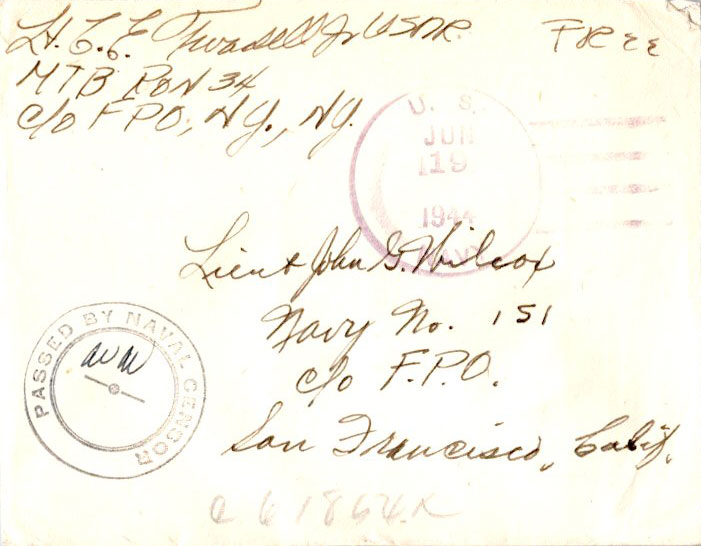 Lt. E. E. Twadell Jr USNR.
Free
MTB RON 34
c/o FPO, NY., NY.
U. S.
JUN
19
1944
NAVY
Lieut John G. Wilcox
Navy No. 151
c/o F.P.O.
San Francisco, Calif.
PASSED BY NAVAL CENSOR